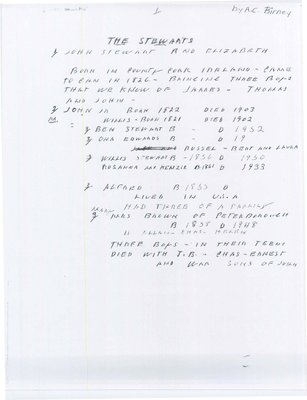 1
by R.C. Birney
THE STEWARTS
JOHN STEWART AND ELIZABETH
BORN IN COUNTY CORK IRELAND - CAME
TO CAN IN 1826 - BRINGING THREE BOYS
THAT WE KNOW OF JAMES - THOMAS
AND JOHN -
JOHN JR BORN 1822 DIED 1903
M. WILLIS - BORN 1821 DIED 1902
BEN STEWART B - D 1952
ONA EDWARDS B - D 19
RUSSEL - BRENT AND LAURA
WILLIS STEWART B - 1856 D 1930
ROSANNA McKENZIE B 1861 D 1933
ALFRED B 1855 D
LIVED IN U.S.A
HAD THREE OF A FAMILY
MARY
MRS BROWN OF PETERBOROUGH
B 1858 D 1948
CHAS. HEARN
THREE BOYS - IN THEIR TEENS
DIED WITH T.B. - CHAS - ERNEST
AND WAR SONS OF JOHN